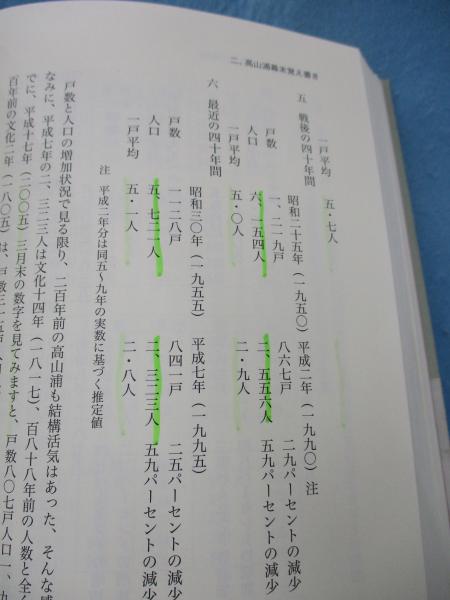 二、高山浦幕末覚え書き
一戸平均 五・七人
五 戦後の四十年間
昭和二十五年(一九五〇) 平成二年(一九九〇) 注
戸数 一、二一九戸 八六七戸 二九パーセントの減少
人口 六、一五四人 二、五五六人 五九パーセントの減少
一戸平均 五・〇人 二・九人
六 最近の四十年間
昭和三〇年(一九五五) 平成七年(一九九五)
戸数 一一二八戸 八四一戸 二五パーセントの減少
人口 五、七二一人 二、三二三人 五九パーセントの減少
一戸平均 五・一人 二・八人
注 平成二年分は同五~九年の実数に基づく推定値
戸数と人口の増加状況で見る限り、二百年前の高山浦も結構活気はあった、そんな感
なみに、平成七年の二、三二三人は文化十四年(一八一七)、百八十八年前の人数と全く
でに、平成十七年(二〇〇五)三月末の数字を見てみますと、戸数八〇七戸人口一、九
百年前の文化二年(一八〇五)は、戸数三一五戸